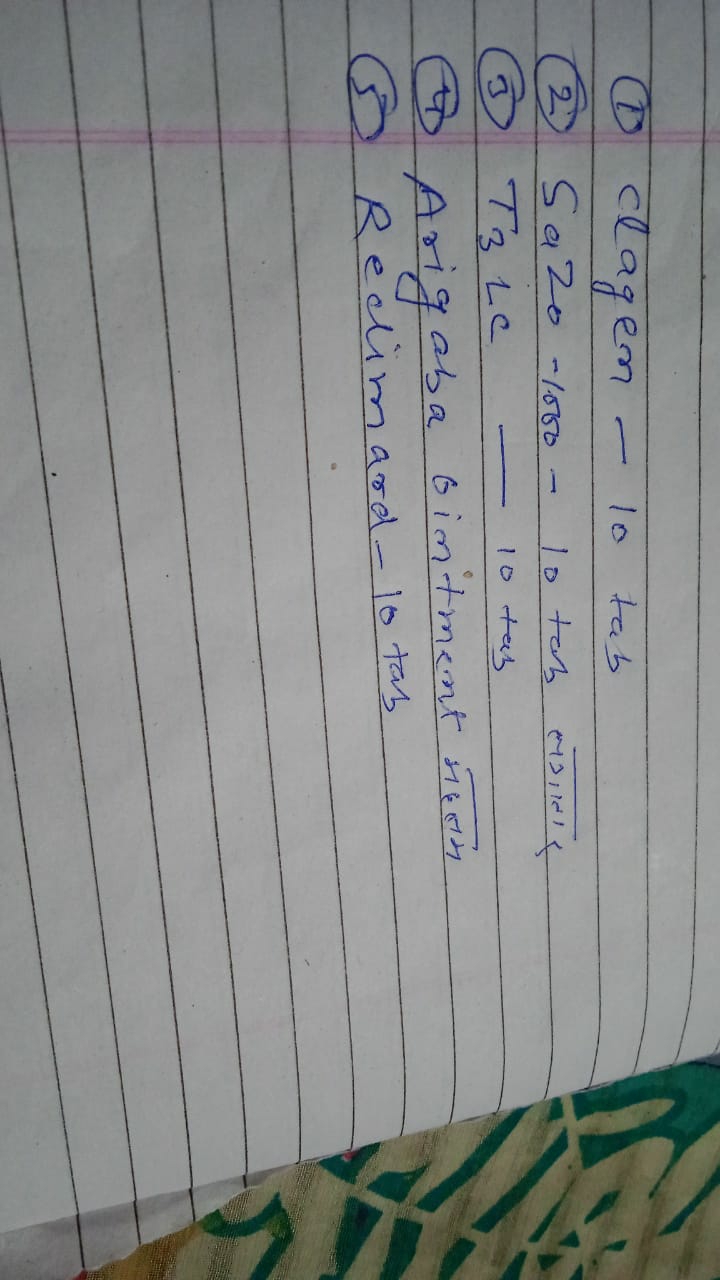 ① clagen - 10 tab
② Sazo - 1000 - 10 tab
③ T3Lc — 10 tab
④ Arigaba ointment मलम
⑤ Reclimard - 10 tab